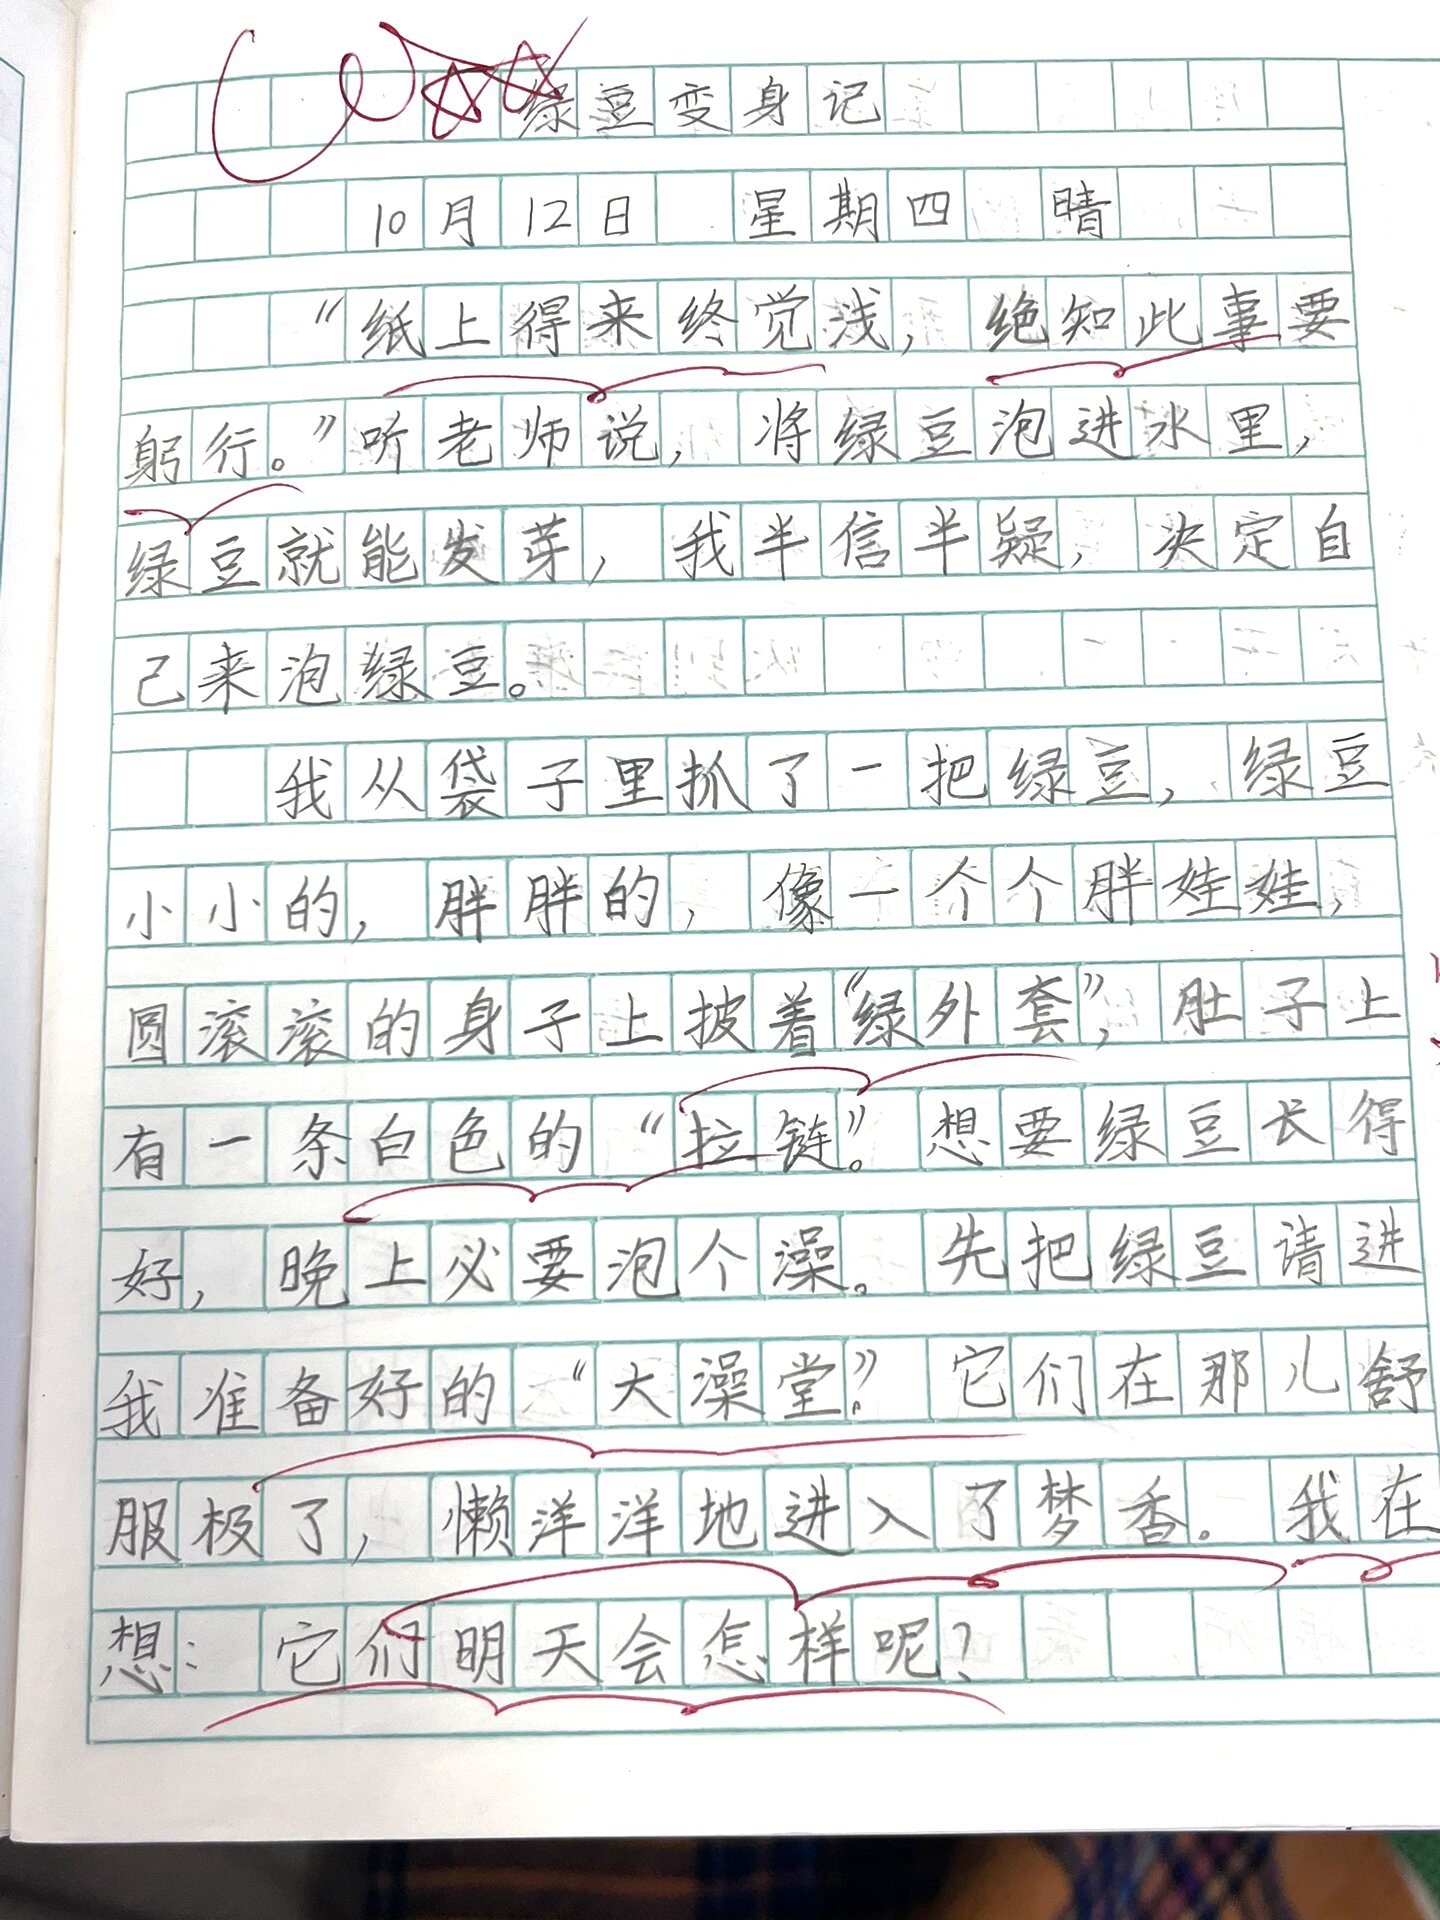 绿豆变身记
10月12日 星期四 晴
“纸上得来终觉浅，绝知此事要
躬行。”听老师说，将绿豆泡进水里，
绿豆就能发芽，我半信半疑，决定自
己来泡绿豆。
我从袋子里抓了一把绿豆，绿豆
小小的，胖胖的，像一个个胖娃娃，
圆滚滚的身子上披着“绿外套”，肚子上
有一条白色的“拉链”。想要绿豆长得
好，晚上必要泡个澡。先把绿豆请进
我准备好的“大澡堂”。它们在那儿舒
服极了，懒洋洋地进入了梦香。我在
想：它们明天会怎样呢？